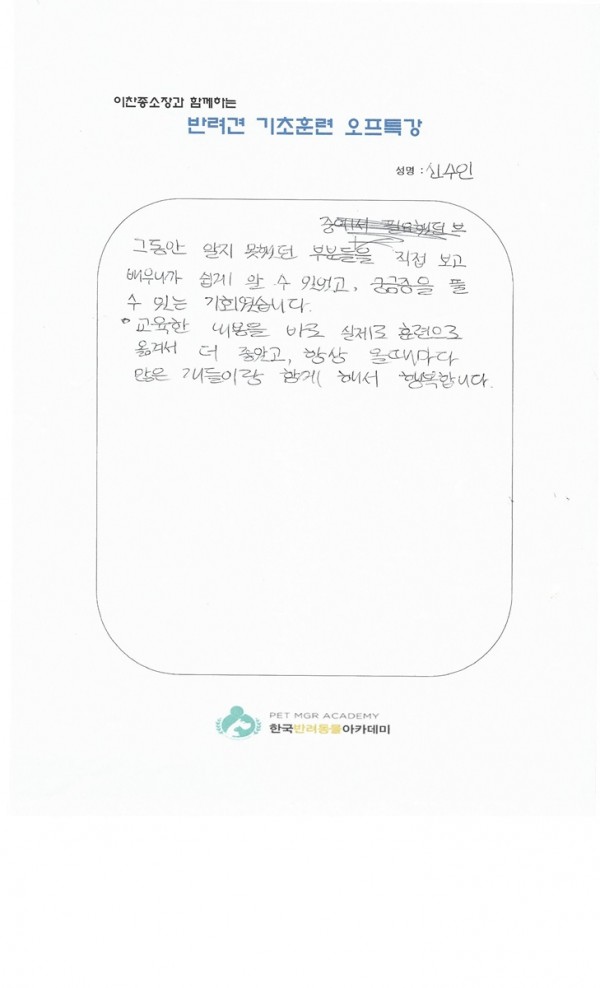 이찬종소장과 함께하는
반려견 기초훈련 오프특강
성명 : 신수인
그동안 알지 못했던 부분들을 직접 보고
배우니까 쉽게 알 수 있었고, 궁금증을 풀
수 있는 기회였습니다.
교육한 내용을 바로 실제로 훈련으로
옮겨서 더 좋았고, 항상 올때마다
많은 개들이랑 함께 해서 행복합니다.
PET MGR ACADEMY
한국반려동물아카데미